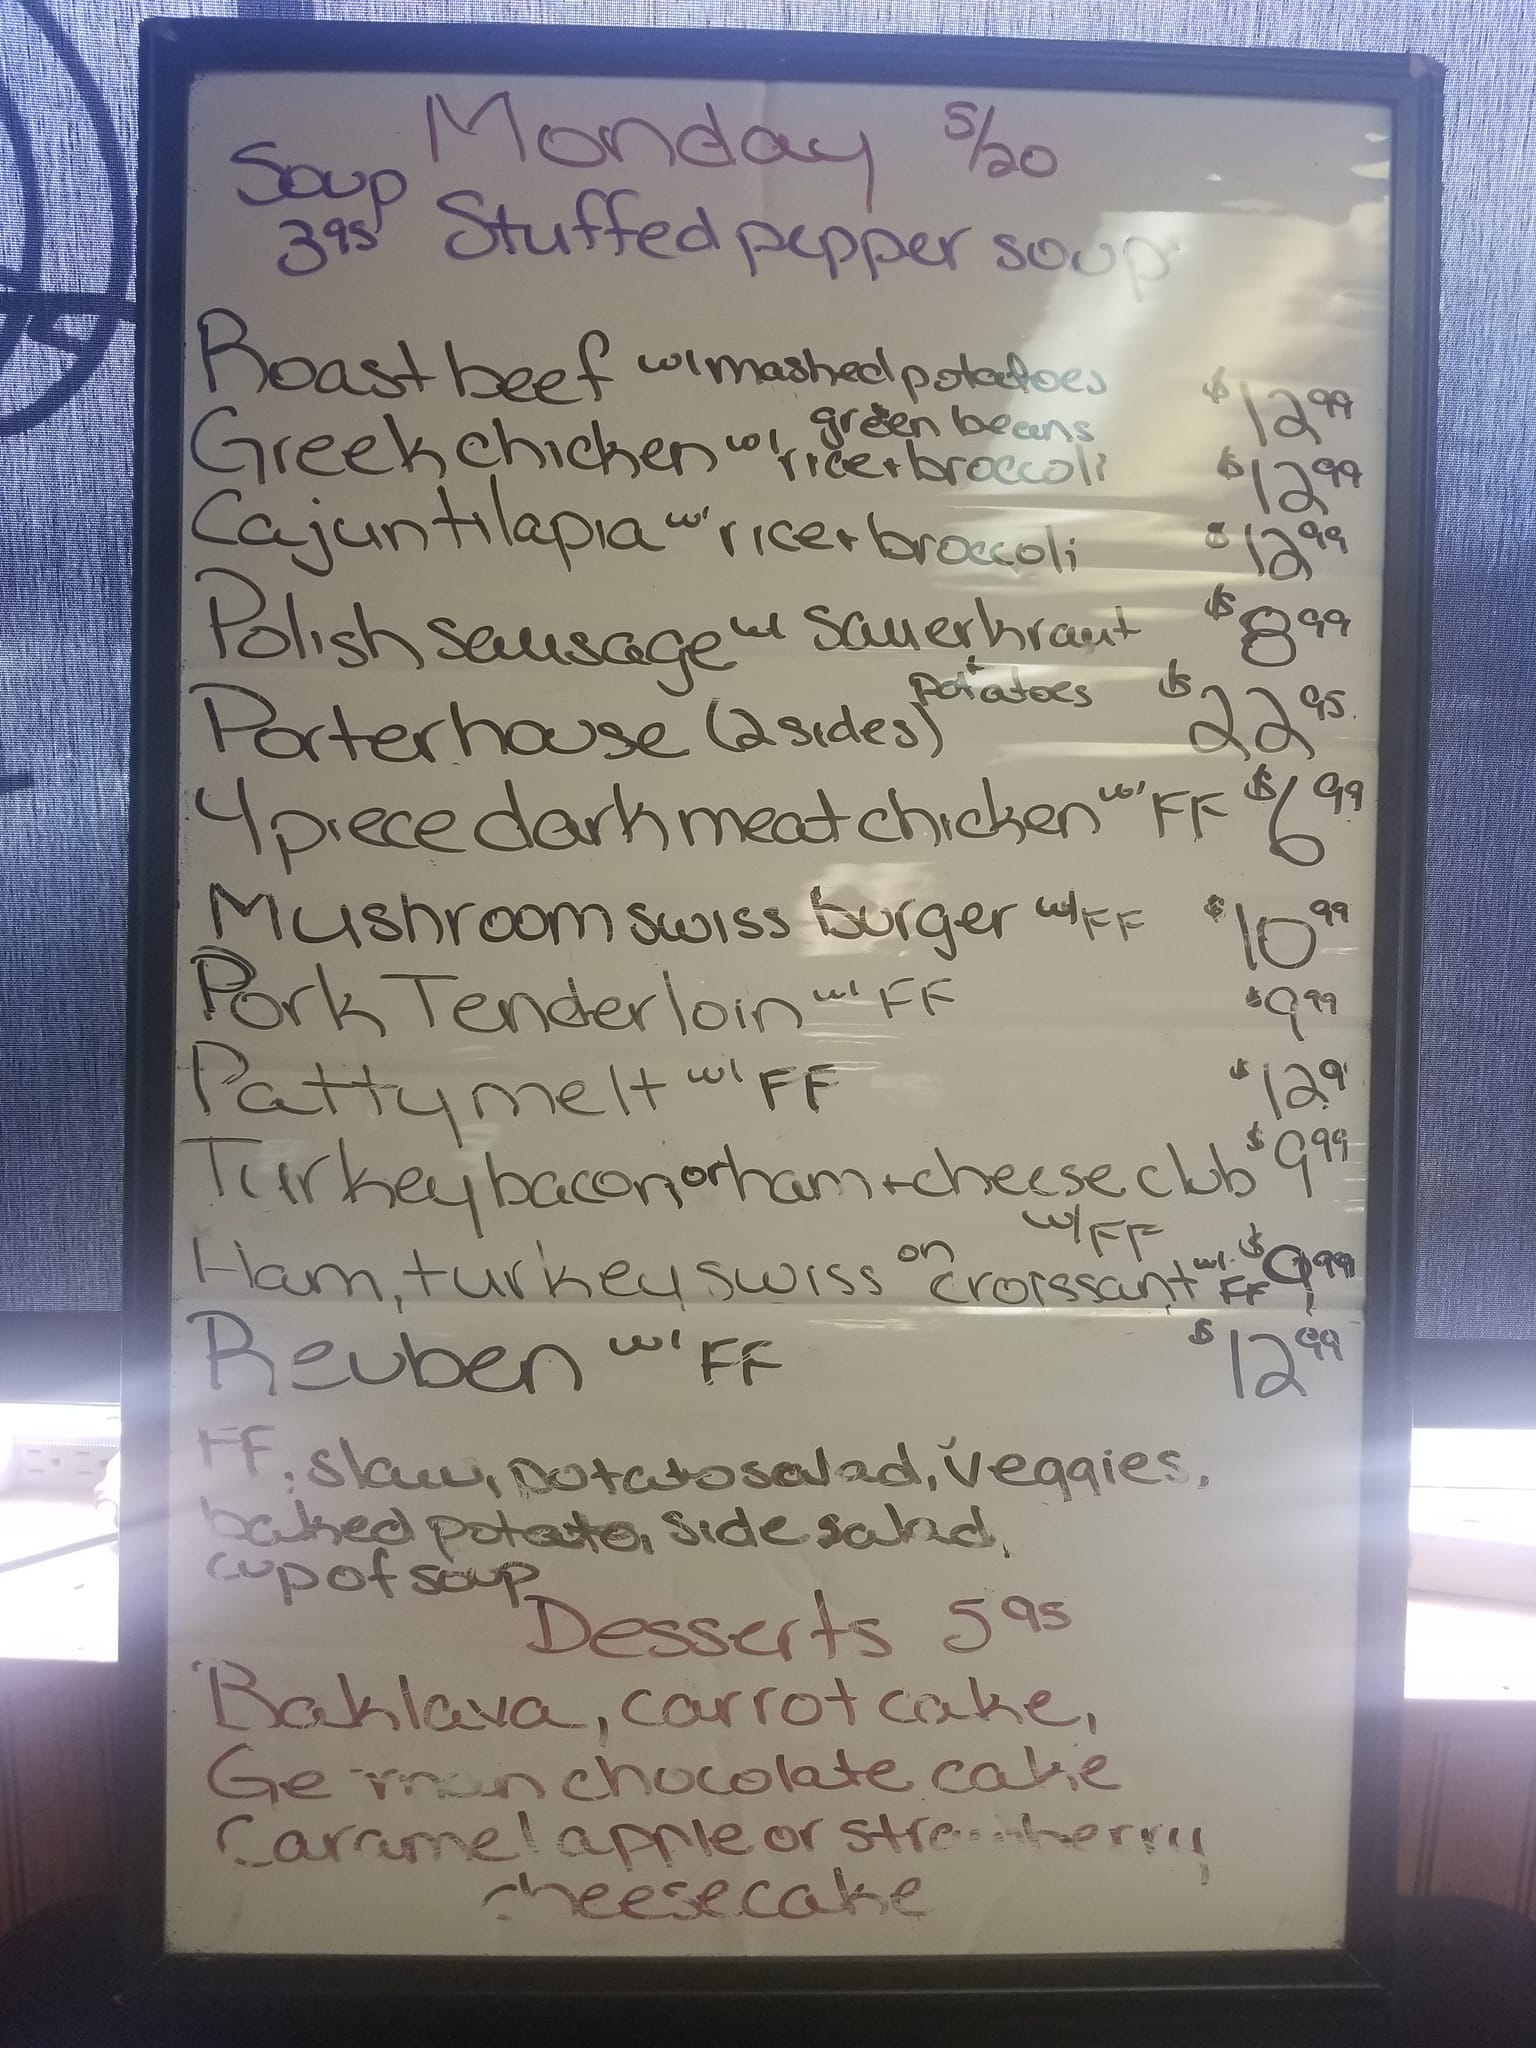 Monday 5/20
Soup
3.95 Stuffed pepper soup
Roast beef w/ mashed potatoes $12.99
green beans
Greek chicken w/ rice + broccoli $12.99
Cajun tilapia w/ rice + broccoli $12.99
Polish sausage w/ sauerkraut $8.99
+ potatoes
Porterhouse (2 sides) $22.95
4 piece dark meat chicken w/ FF $6.99
Mushroom swiss burger w/ FF $10.99
Pork Tenderloin w/ FF $9.99
Patty melt w/ FF $12.9
Turkey bacon or ham + cheese club $9.99
w/ FF
Ham, turkey swiss on croissant w/ FF $9.99
Reuben w/ FF $12.99
FF, slaw, potato salad, veggies,
baked potato, side salad,
cup of soup
Desserts 5.95
Baklava, carrot cake,
German chocolate cake
Caramel apple or strawberry
cheesecake